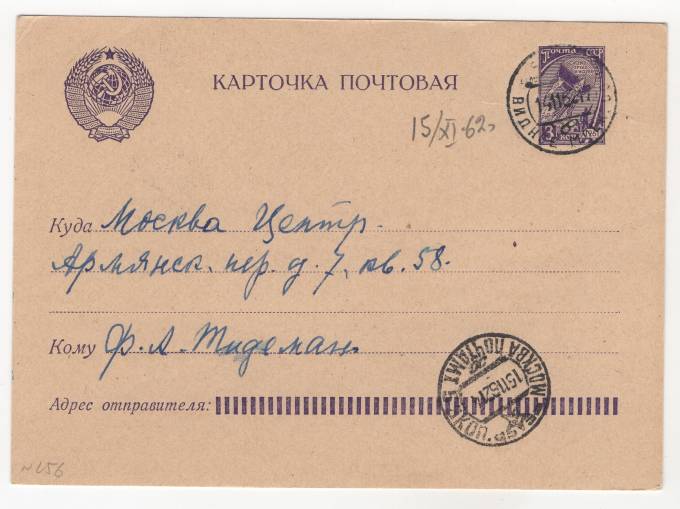 КАРТОЧКА ПОЧТОВАЯ
ПОЧТА СССР
3 коп
15/XI-62г
Куда Москва Центр.
Армянск. пер. д. 7, кв. 58.
Кому Ф. А. Тидеман
Адрес отправителя:
МОСКВА ПОЧТАМТ
№156